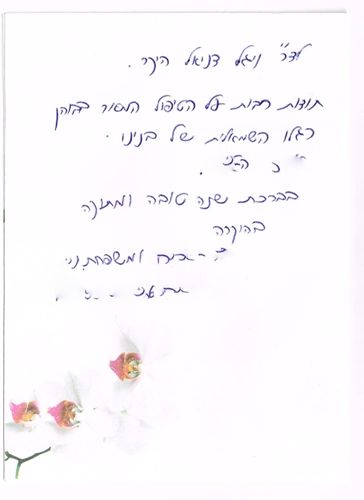 לדר" ניגל דניאל היקר.
תודות רבות על הטיפול המסור בבוהן
רגלו השמאלית של בנינו.
בברכת שנה טובה ומתוקה
בהוקרה
ומשפחת